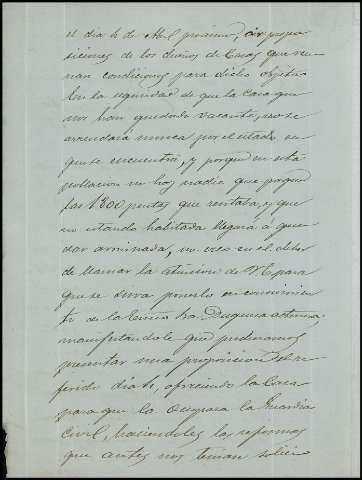 el dia 6 de Abril proximo, oir propo
siciones de los dueños de Casas que reu
nan condiciones para dicho objeto.
En la seguridad de que la Casa que
nos han quedado vacante, no se
arrendará nunca por el estado en
que se encuentra, y porque en esta
poblacion no hay nadie que pague
las 1300 pesetas que rentaba, y que
no estando habitada llegará a que
dar arruinada, me creo en el deber
de llamar la atencion de V. para
que se sirva ponerlo en conocimien
to de la Exma. Sra. Duquesa
manifestandole que podriamos
presentar una proposicion el re
ferido dia 6, ofreciendo la Casa
para que la ocupara la Guardia
Civil, haciendoles las reformas
que antes nos tenian solici